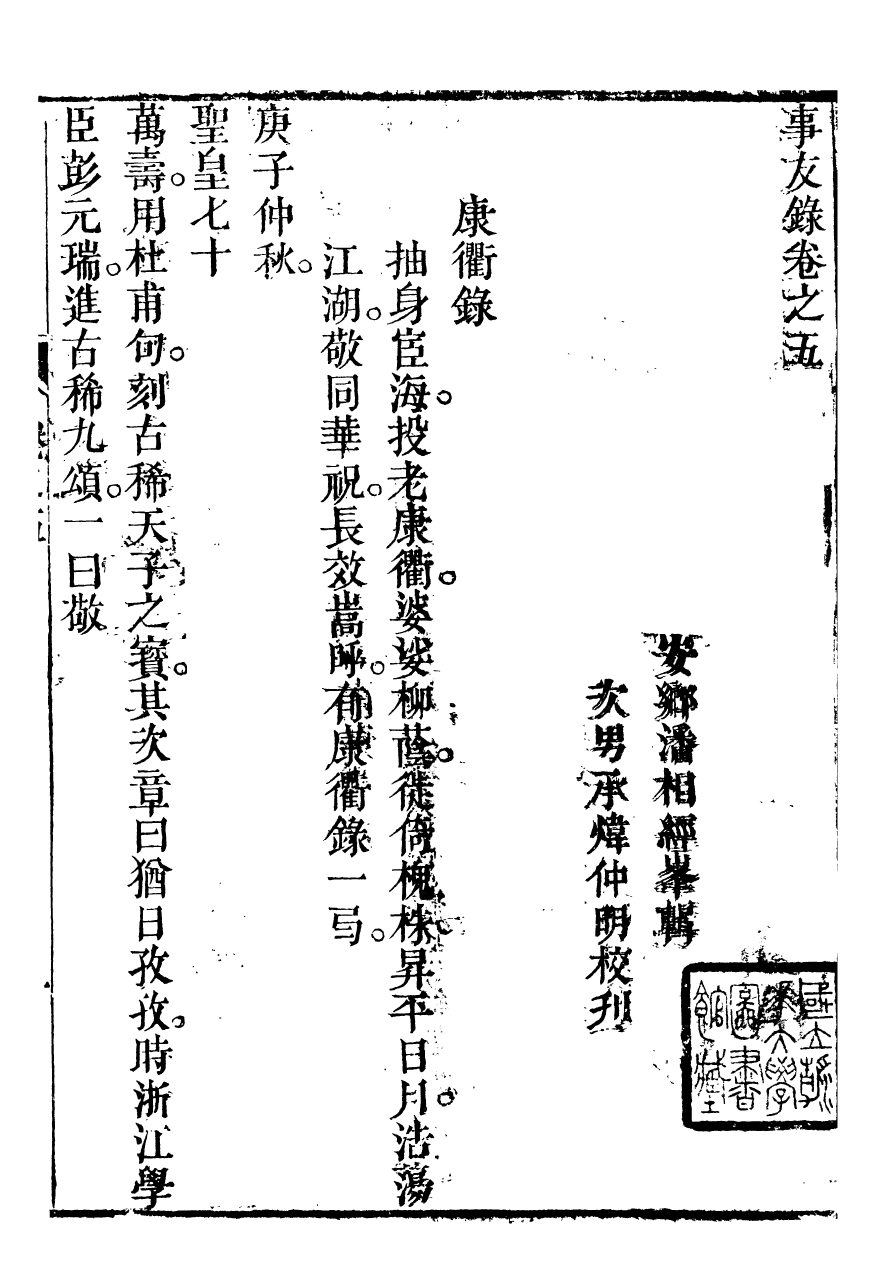 事友錄卷之五
安鄉潘相經峯輯
次男承煒仲明校刋
康衢錄
抽身宦海。投老康衢。婆娑柳蔭。徙倚槐株。昇平日月。浩蕩
江湖。敬同華祝。長效嵩呼。有康衢錄一弓。
庚子仲秋。
聖皇七十
萬壽。用杜甫句。刻古稀天子之寶。其次章曰猶日孜孜。時浙江學
臣彭元瑞。進古稀九頌。一曰敬
國立
大學
圖書
館藏